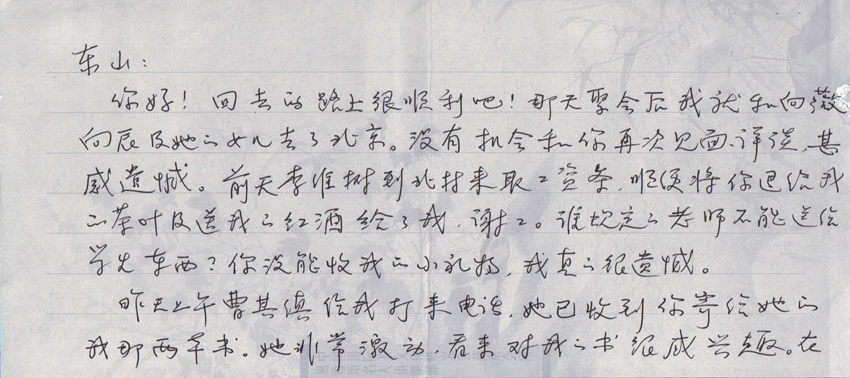 东山：
你好！回去的路上很顺利吧！那天聚会后我就和向薇
向辰及她的女儿去了北京。没有机会和你再次见面、详谈，甚
感遗憾。前天李维树到北村来取工资条，顺便将你退给我
的茶叶及送我的红酒给了我，谢谢。谁规定的老师不能送给
学生东西？你没能收我的小礼物，我真的很遗憾。
昨天上午曹其缜给我打来电话，她已收到你寄给她的
我那两本书。她非常激动，看来对我的书很感兴趣。在